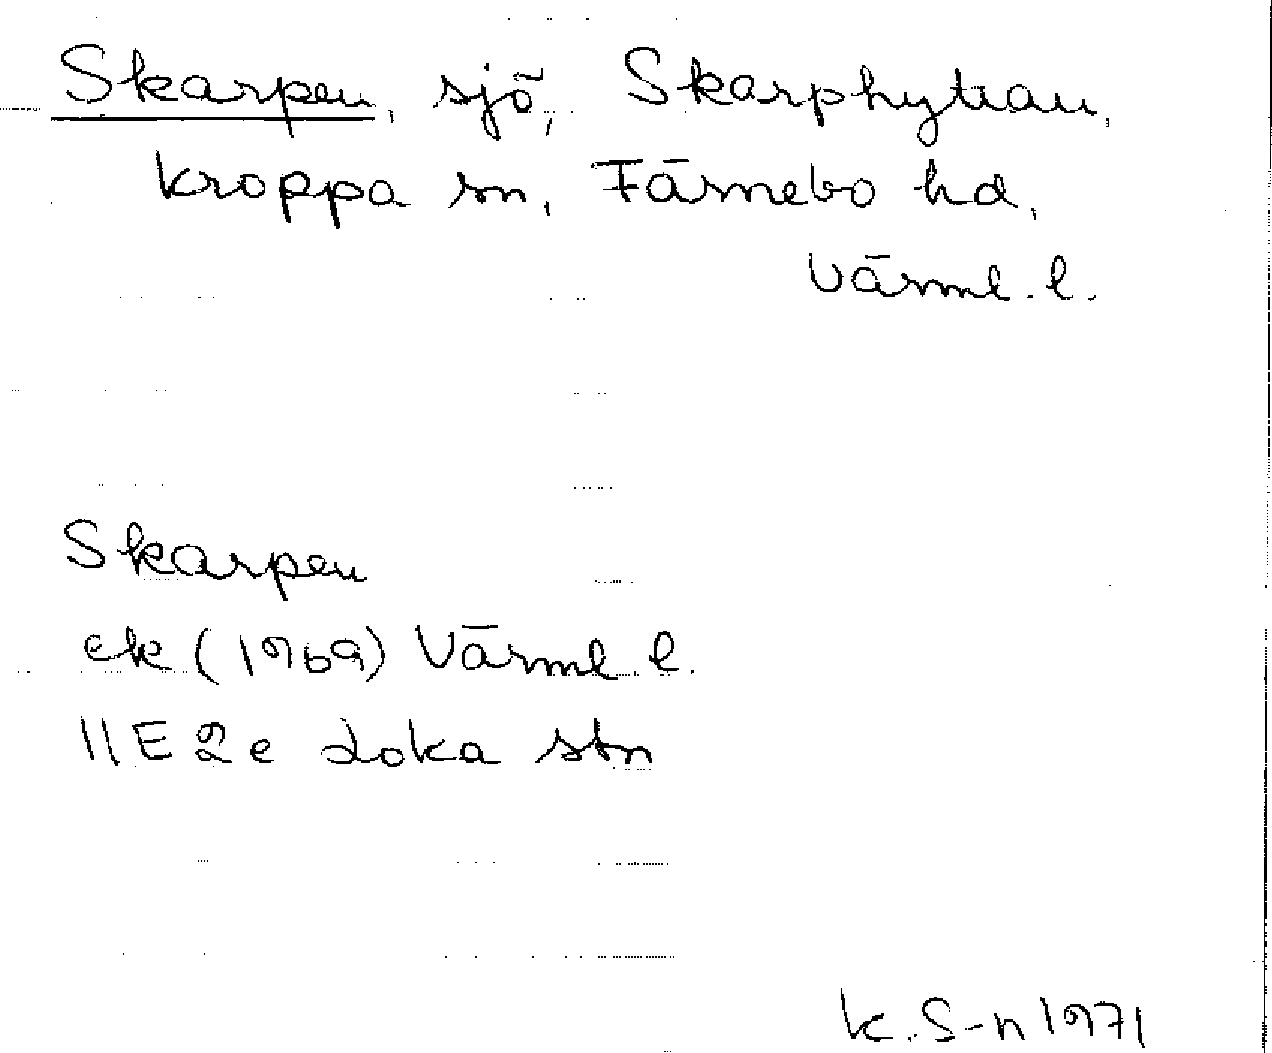 Skarpen, sjö, Skarphyttan,
Kroppa sn, Färnebo hd,
Värml. l.
Skarpen
ek (1969) Värml. l.
11E 2e Loka stn
K. S-n 1971